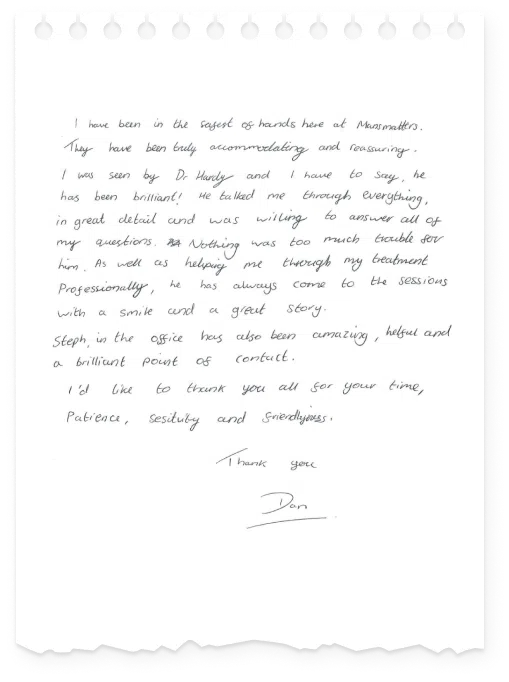 I have been in the safest of hands here at Mansmatters.
They have been truly accommodating and reassuring.
I was seen by Dr Hardy and I have to say, he
has been brilliant! He talked me through everything,
in great detail and was willing to answer all of
my questions. Nothing was too much trouble for
him. As well as helping me through my treatment
Professionally, he has always come to the sessions
with a smile and a great story.
Steph, in the office has also been amazing, helful and
a brilliant point of contact.
I'd like to thank you all for your time,
Patience, sesituity and friendlyness.
Thank you
Dan